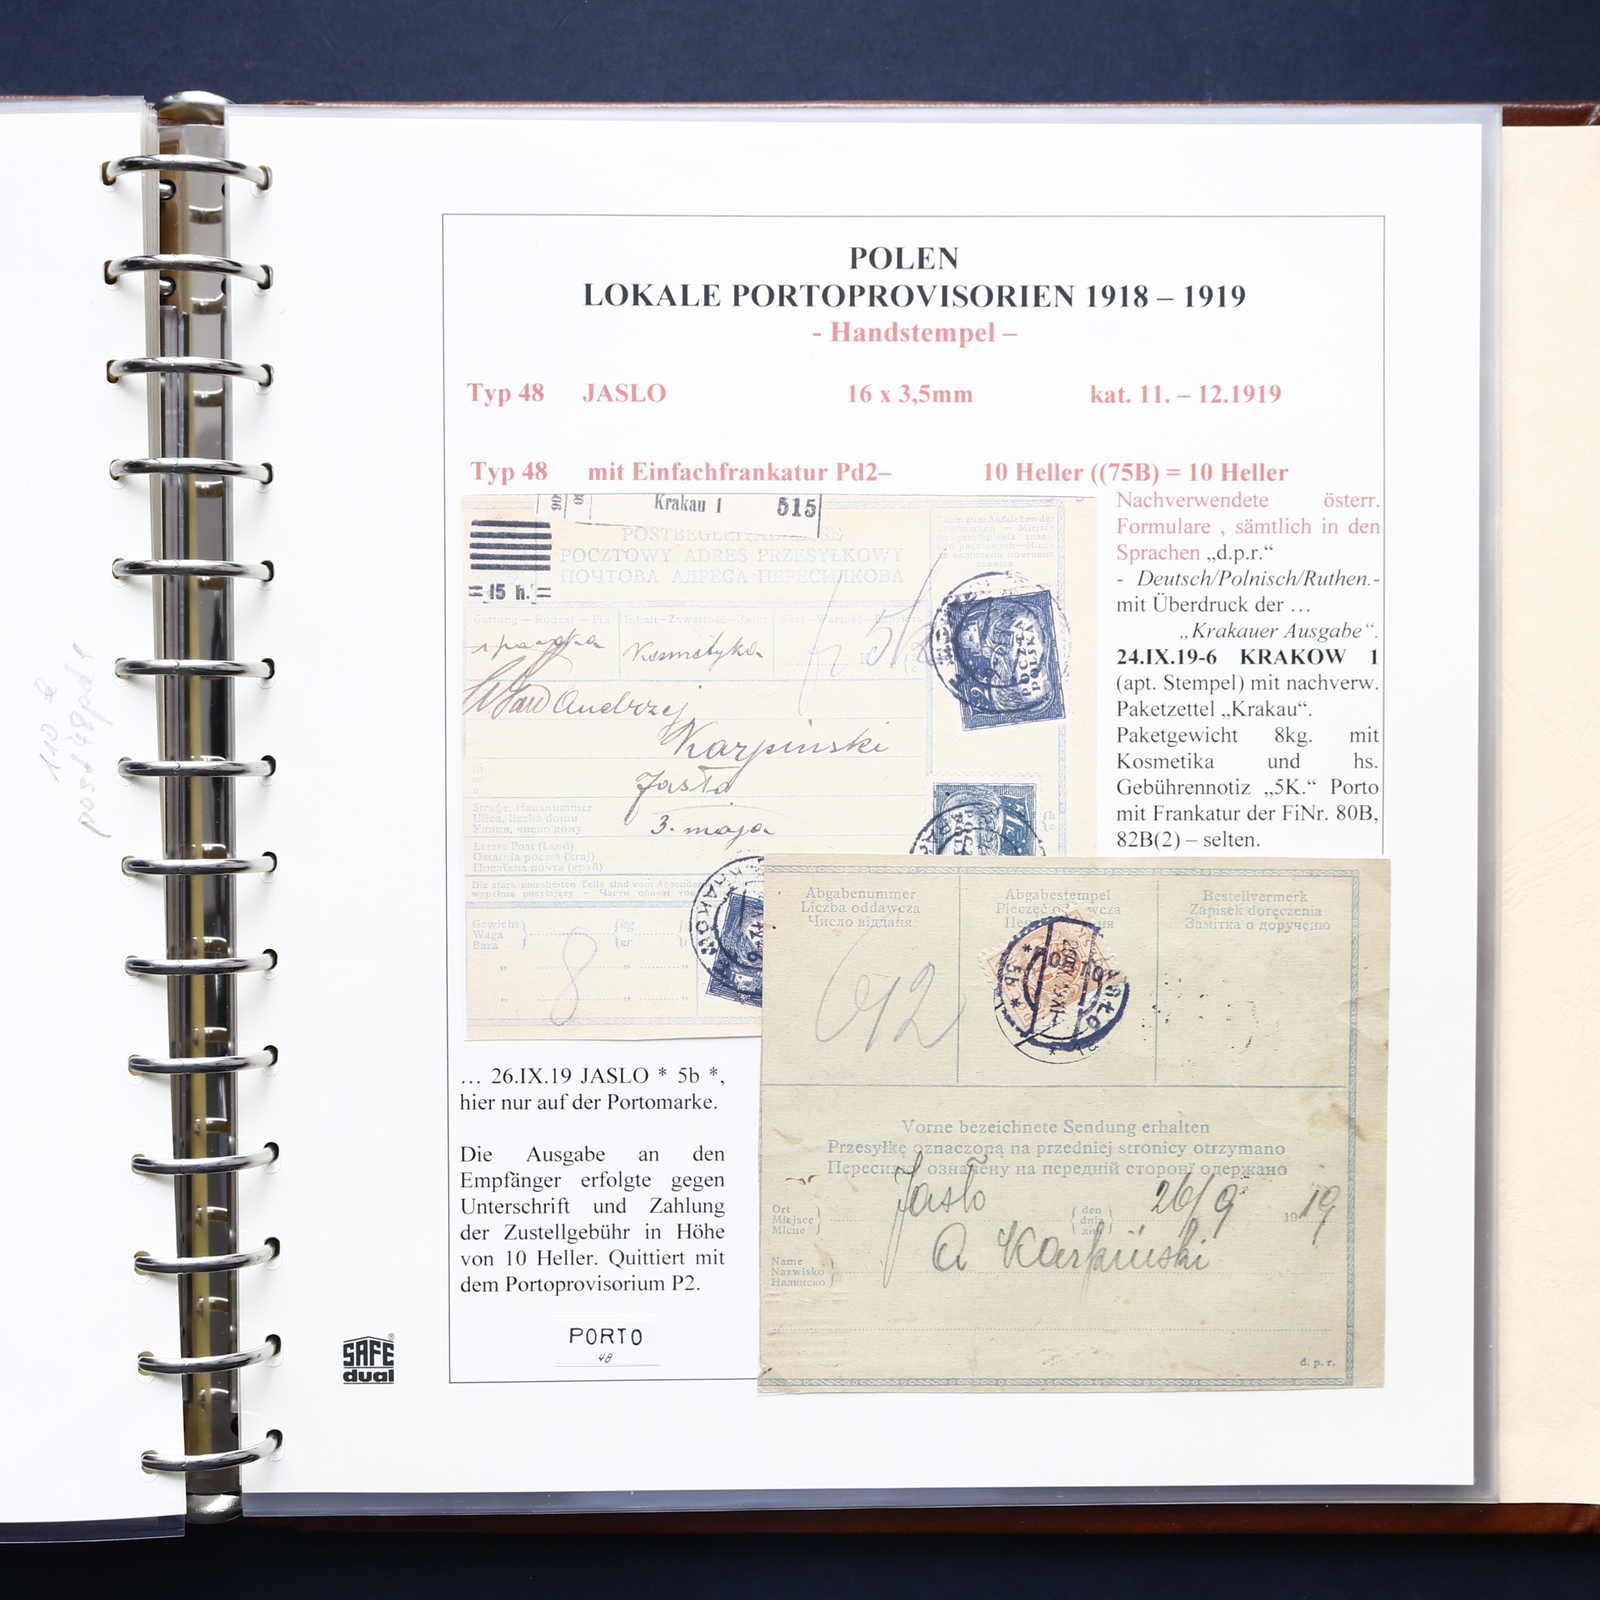 POLEN
LOKALE PORTOPROVISORIEN 1918 – 1919
- Handstempel –
Typ 48 JASLO 16 x 3,5mm kat. 11. – 12.1919
Typ 48 mit Einfachfrankatur Pd2– 10 Heller ((75B) = 10 Heller
Krakau 1 515
POCZTOWY ADRES PRZESYŁKOWY
ПОЧТОВА АДРЕСА ПЕРЕСИЛКОВА
=15 h.=
Kosmetyka
5k
Andrzej
Karpinski
Jasło
Straße, Hausnummer
Ulica, liczba domu
Улиця, число дому
3. maja
Letzte Post (Land)
Ostatnia poczta (kraj)
Gewicht
Waga
Вага
8
POCZTA
POLSKA
KRAKÓW
Nachverwendete österr.
Formulare , sämtlich in den
Sprachen „d.p.r.“
- Deutsch/Polnisch/Ruthen.-
mit Überdruck der …
„Krakauer Ausgabe“.
24.IX.19-6 KRAKOW 1
(apt. Stempel) mit nachverw.
Paketzettel „Krakau“.
Paketgewicht 8kg. mit
Kosmetika und hs.
Gebührennotiz „5K.“ Porto
mit Frankatur der FiNr. 80B,
82B(2) – selten.
Abgabenummer
Liczba oddawcza
Число віддавчя
Abgabestempel
Bestellvermerk
Zapisek doręczenia
Замітка о дорученю
612
PORTO
JASŁO
* 5b *
Vorne bezeichnete Sendung erhalten
Przesyłkę oznaczoną na przedniej stronicy otrzymano
означену на передній стороні одержано
Ort
Miejsce
Місце
Jasło
den
dnia
26/9 1919
Name
Nazwisko
Назвиско
A Karpiński
d. p. r.
… 26.IX.19 JASLO * 5b *,
hier nur auf der Portomarke.
Die Ausgabe an den
Empfänger erfolgte gegen
Unterschrift und Zahlung
der Zustellgebühr in Höhe
von 10 Heller. Quittiert mit
dem Portoprovisorium P2.
PORTO
48
SAFE
dual